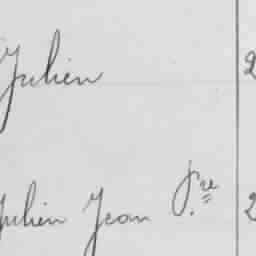 Julien 2
Julien Jean P.re 2